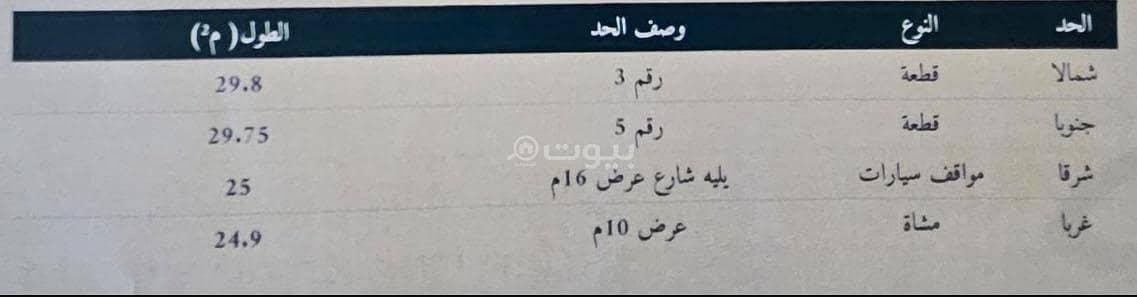 الحد النوع وصف الحد الطول( م²)
شمالا قطعة رقم 3 29.8
جنوبا قطعة رقم 5 29.75
بيوت
شرقا مواقف سيارات يليه شارع عرض 16م 25
غربا مشاة عرض 10م 24.9